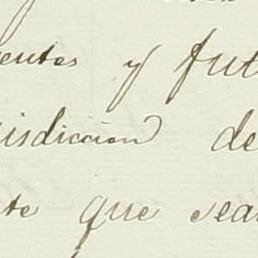 entes y fut
isdiccion de
te que sean